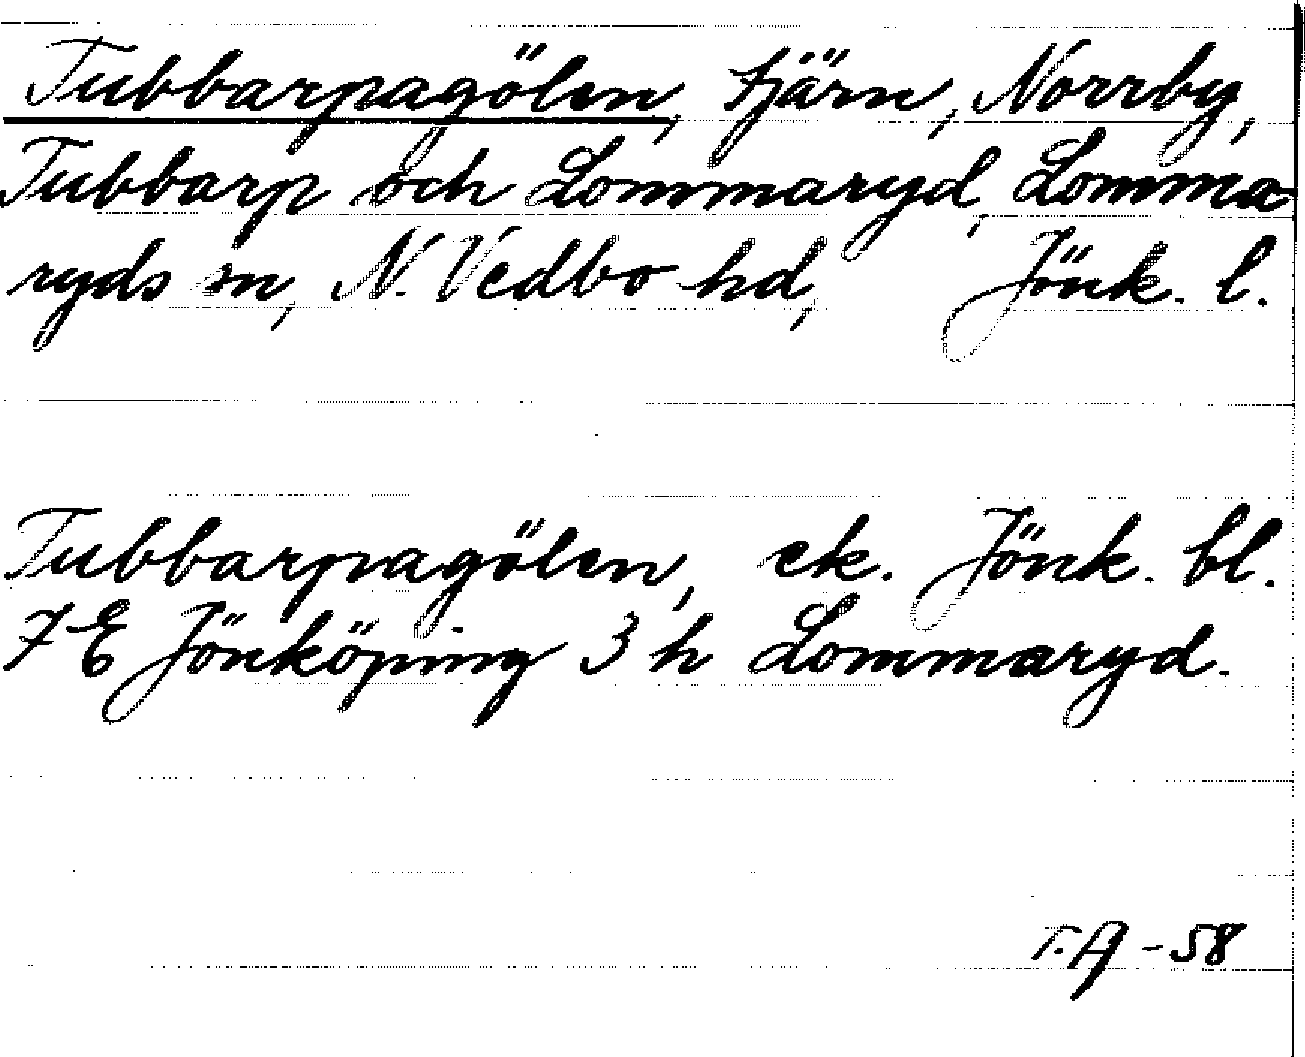 Tubbarpagölen, tjärn, Norrby,
Tubbarp och Lommaryd, Lomma-
ryds sn, N. Vedbo hd, Jönk. l.
Tubbarpagölen, ek. Jönk. bl.
7 E Jönköping 3 h Lommaryd.
T.A -58